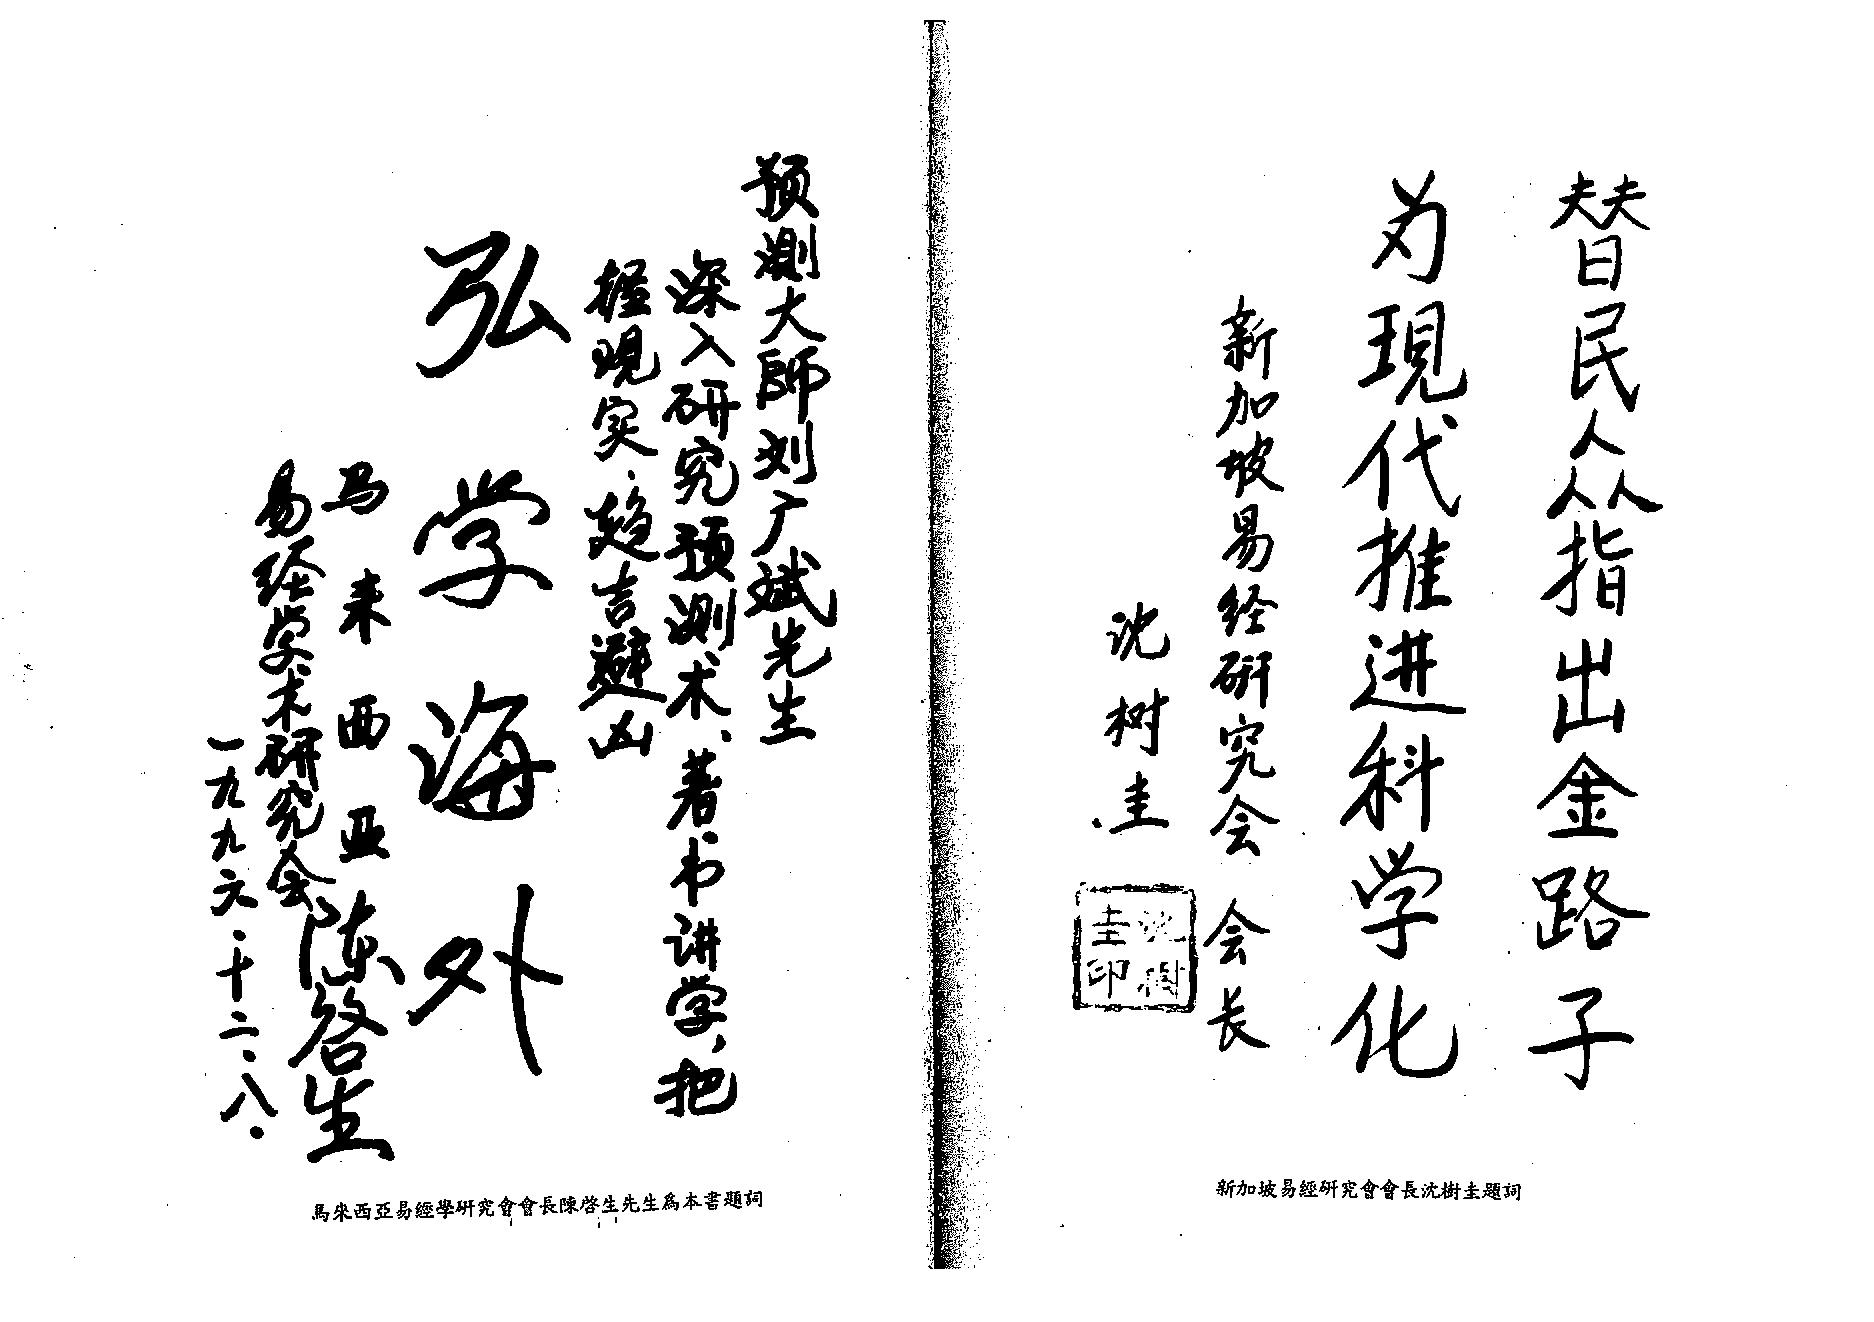 替民众指出金路子
为現代推进科学化
新加坡易经研究会会长
沈树圭
沈樹圭印
新加坡易經研究會會長沈樹圭題詞
预测大師刘广斌先生
深入研究预测术、著书讲学,把
握现实、趋吉避凶
弘学海外
马来西亚
易经学术研究会
陈啓生
一九九六.十二.八.
馬來西亞易經學研究會會長陳啓生先生爲本書題詞